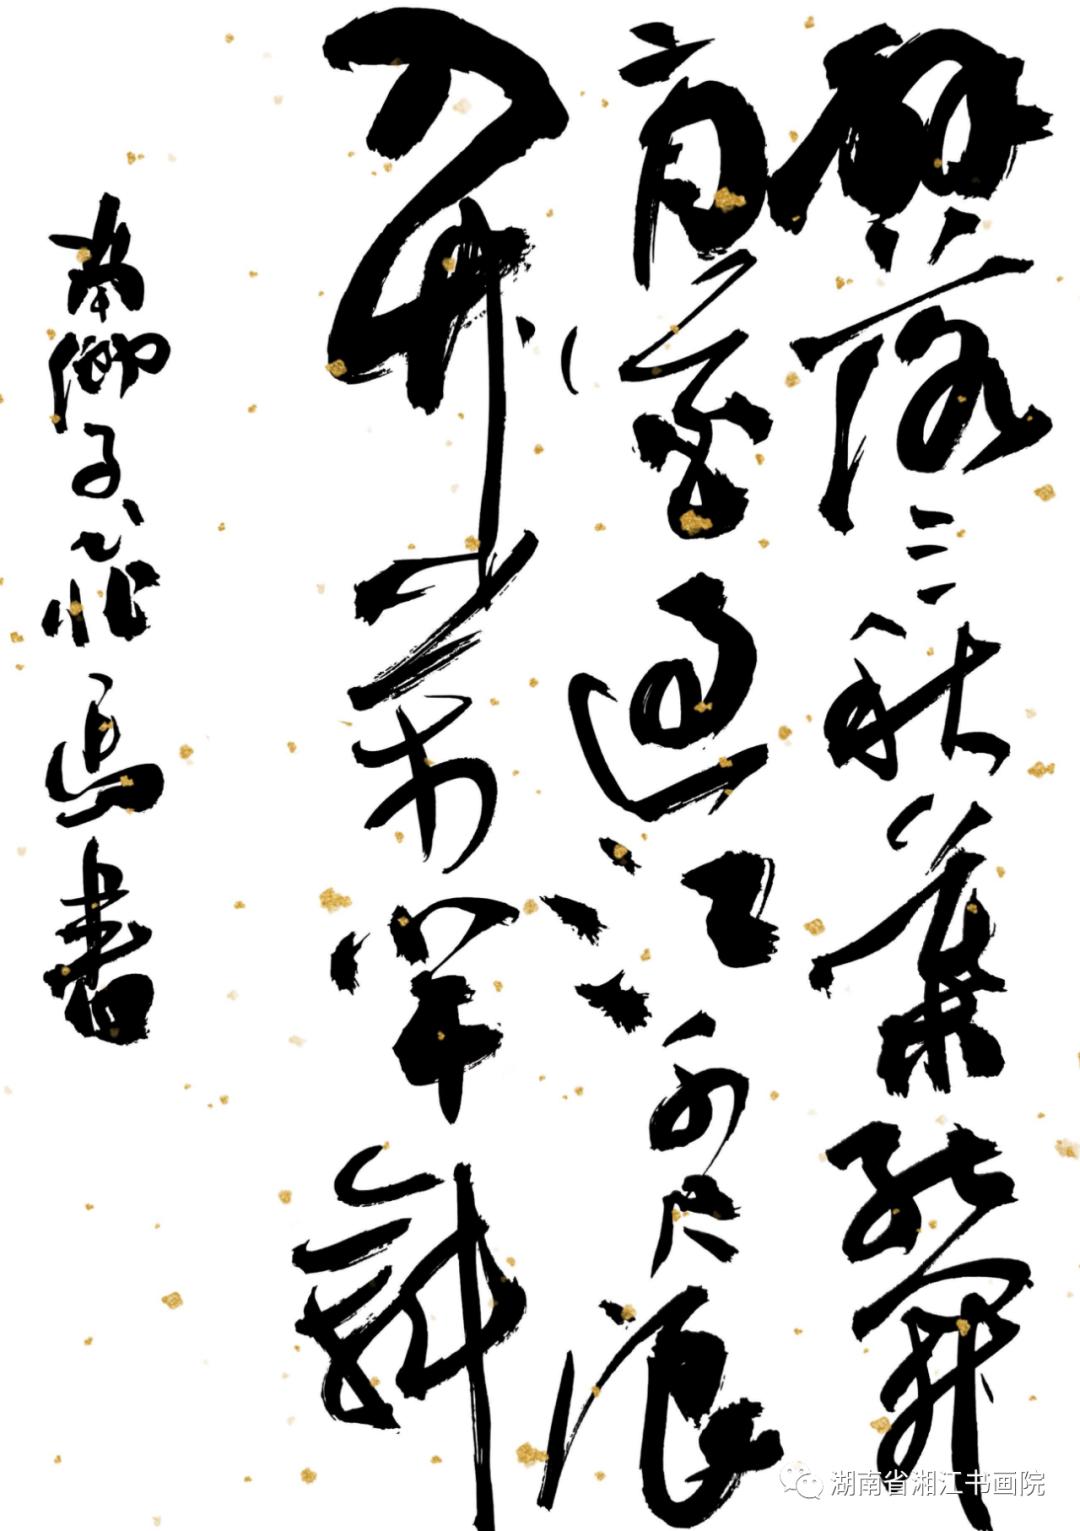 解落三秋叶能开
二月花过江千尺浪
入竹万竿斜
南乡子之非马书
湖南省湘江书画院